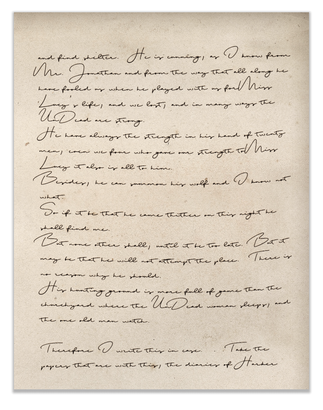 and find shelter. He is cunning, as I know from
Mr. Jonathan and from the way that all along he
have fooled us when he played with us for Miss
Lucy's life, and we lost; and in many ways the
UnDead are strong.
He have always the strength in his hand of twenty
men; even we four who gave our strength to Miss
Lucy it also is all to him.
Besides, he can summon his wolf and I know not
what.
So if it be that he came thither on this night he
shall find me.
But none other shall, until it be too late. But it
may be that he will not attempt the place. There is
no reason why he should.
His hunting ground is more full of game than the
churchyard where the UnDead woman sleeps, and
the one old man watch.
Therefore I write this in case . . . Take the
papers that are with this, the diaries of Harker